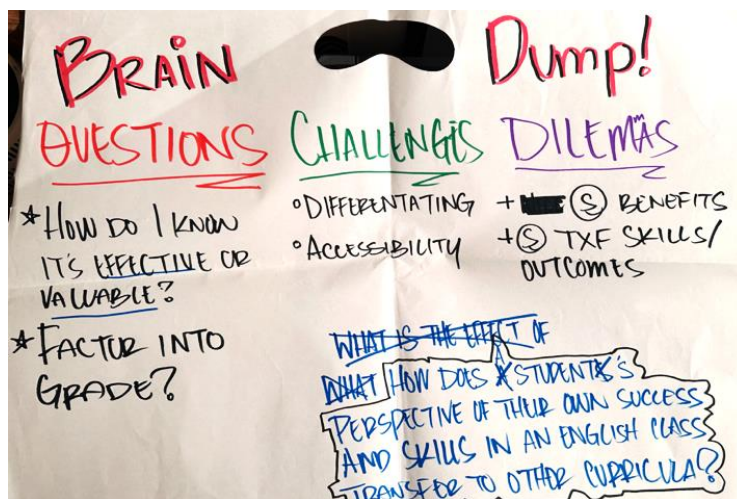 BRAIN DUMP!
QUESTIONS
* HOW DO I KNOW
IT'S EFFECTIVE OR
VALUABLE?
* FACTOR INTO
GRADE?
CHALLENGES
° DIFFERENTATING
° ACCESSIBILITY
DILEMAS
+ S BENEFITS
+ S TXF SKILLS/
OUTCOMES
WHAT IS THE EFFECT OF
WHAT HOW DOES A STUDENT'S
PERSPECTIVE OF THEIR OWN SUCCESS
AND SKILLS IN AN ENGLISH CLASS
TRANSFER TO OTHER CURRICULA?